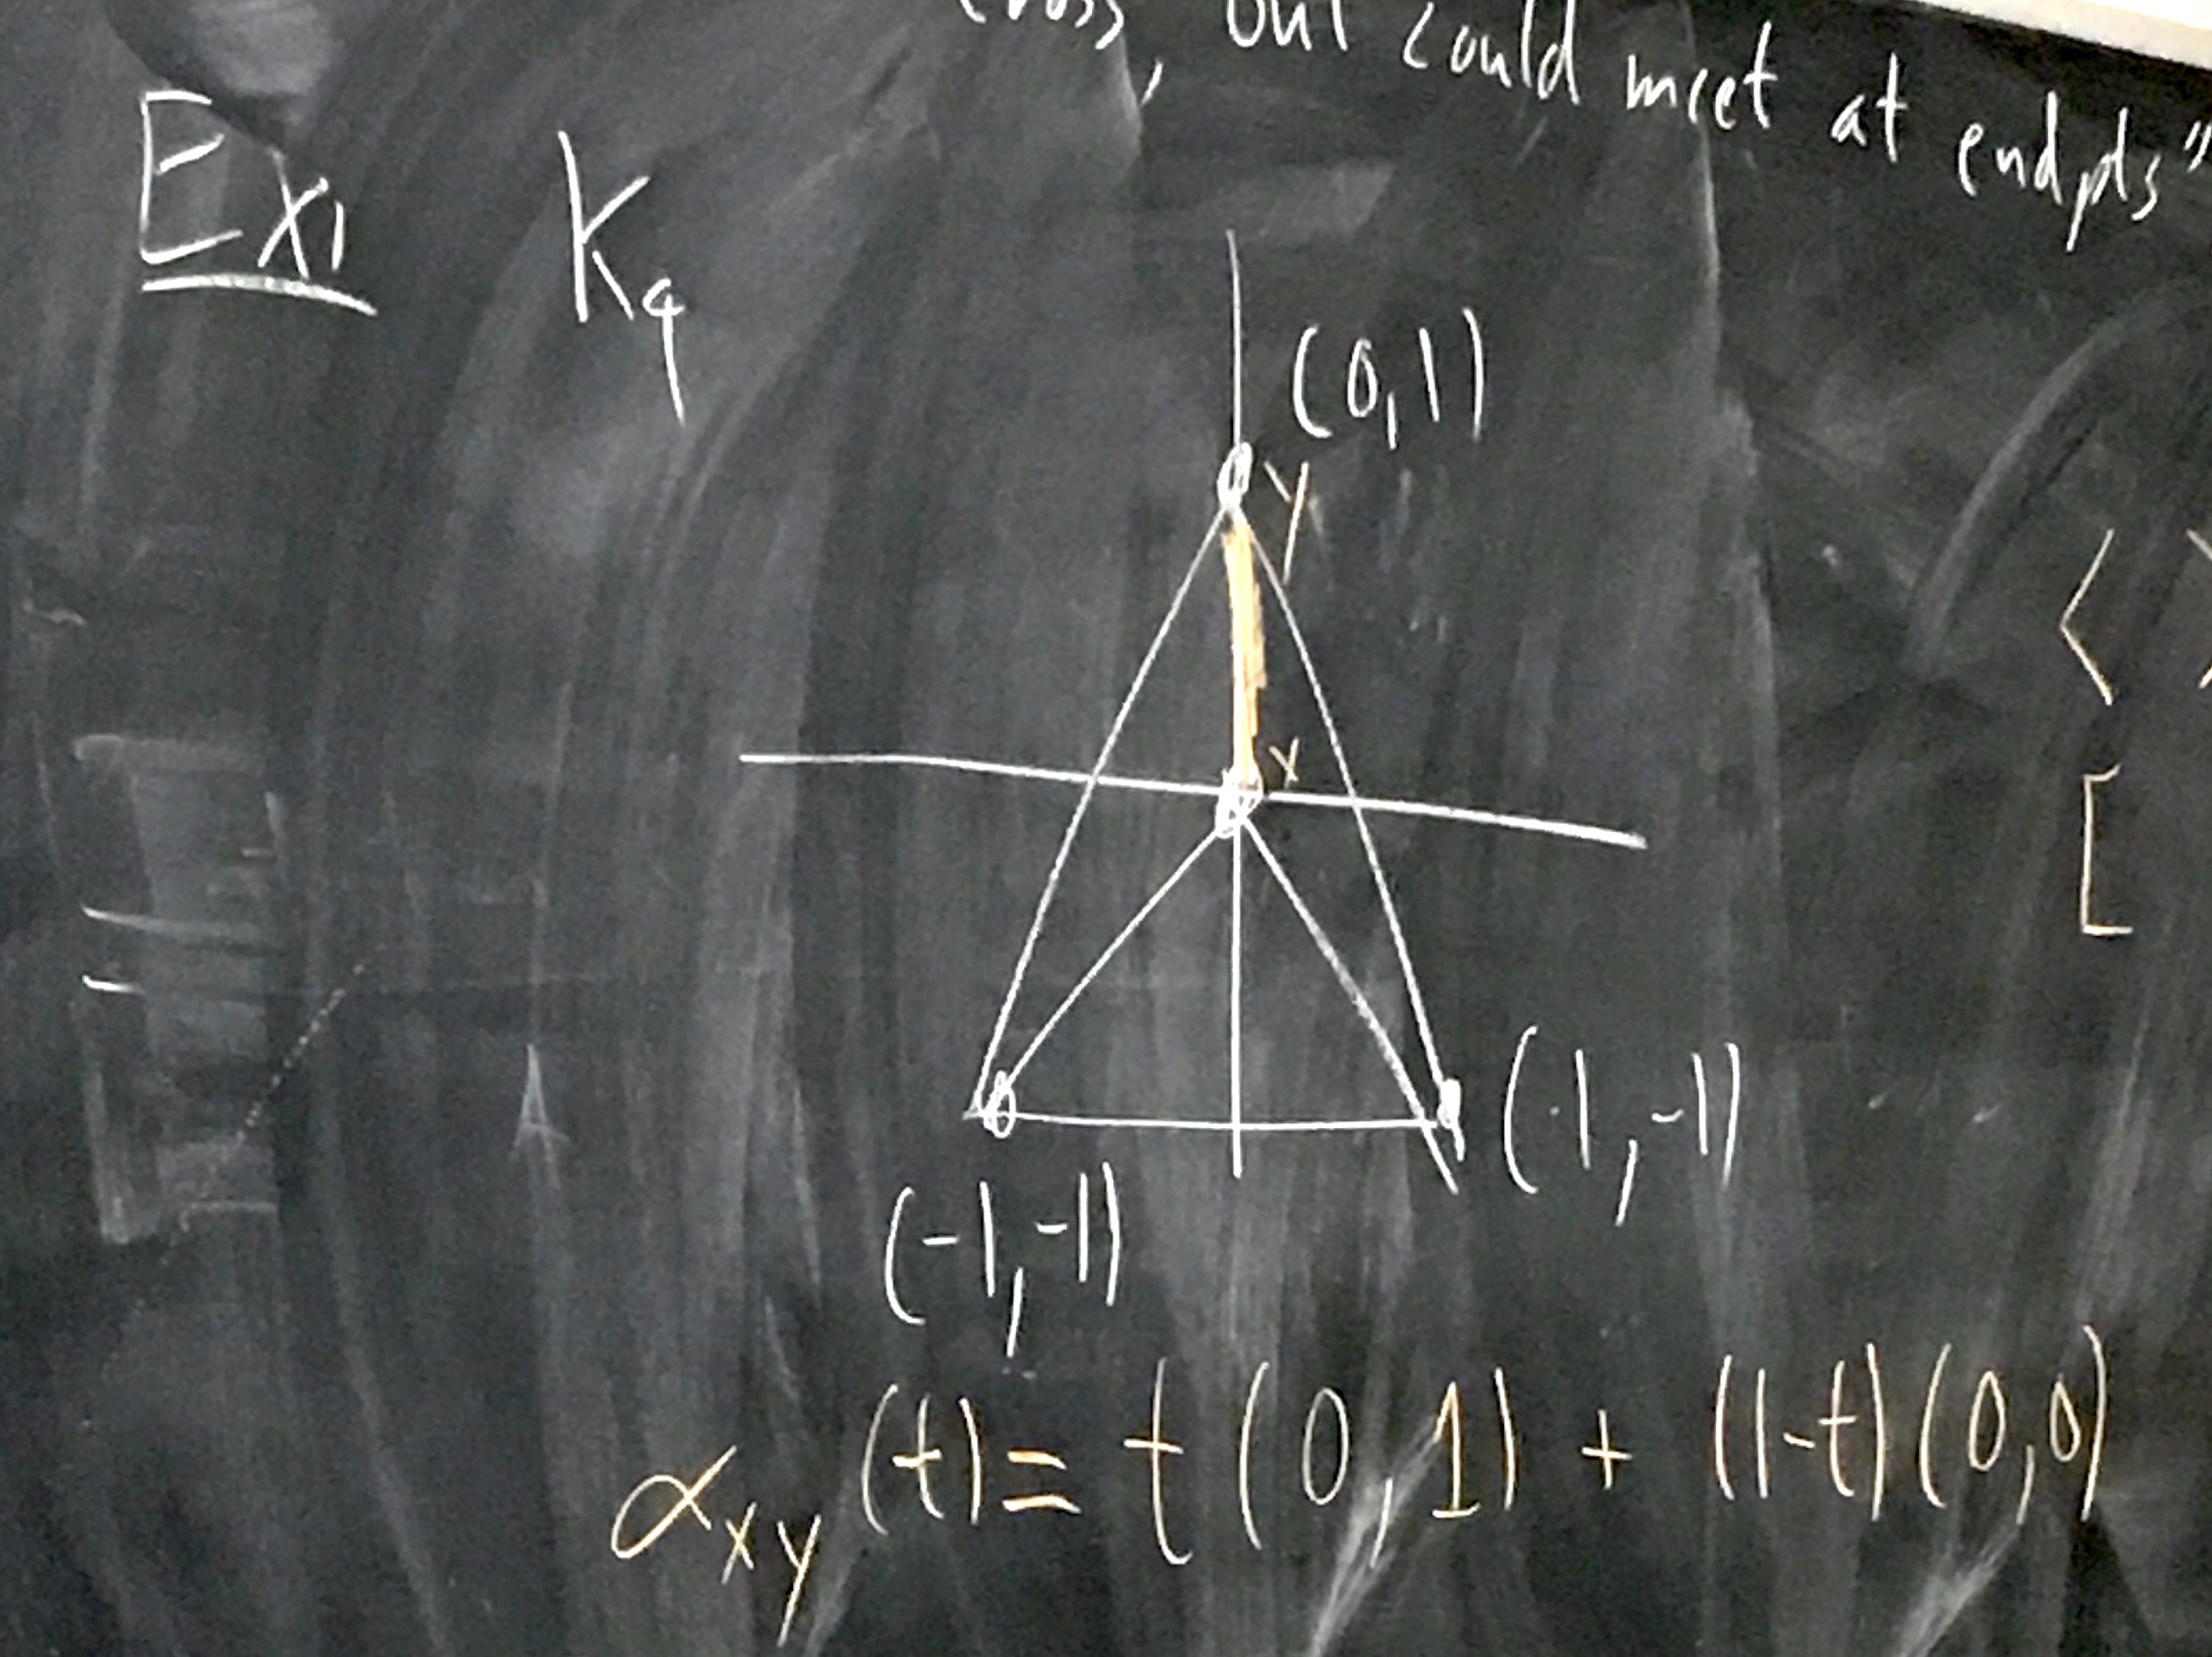 but could meet at endpts"
Ex1 K4
(0,1)
y
x
(1,-1)
(-1,-1)
αxy (t) = t (0,1) + (1-t) (0,0)